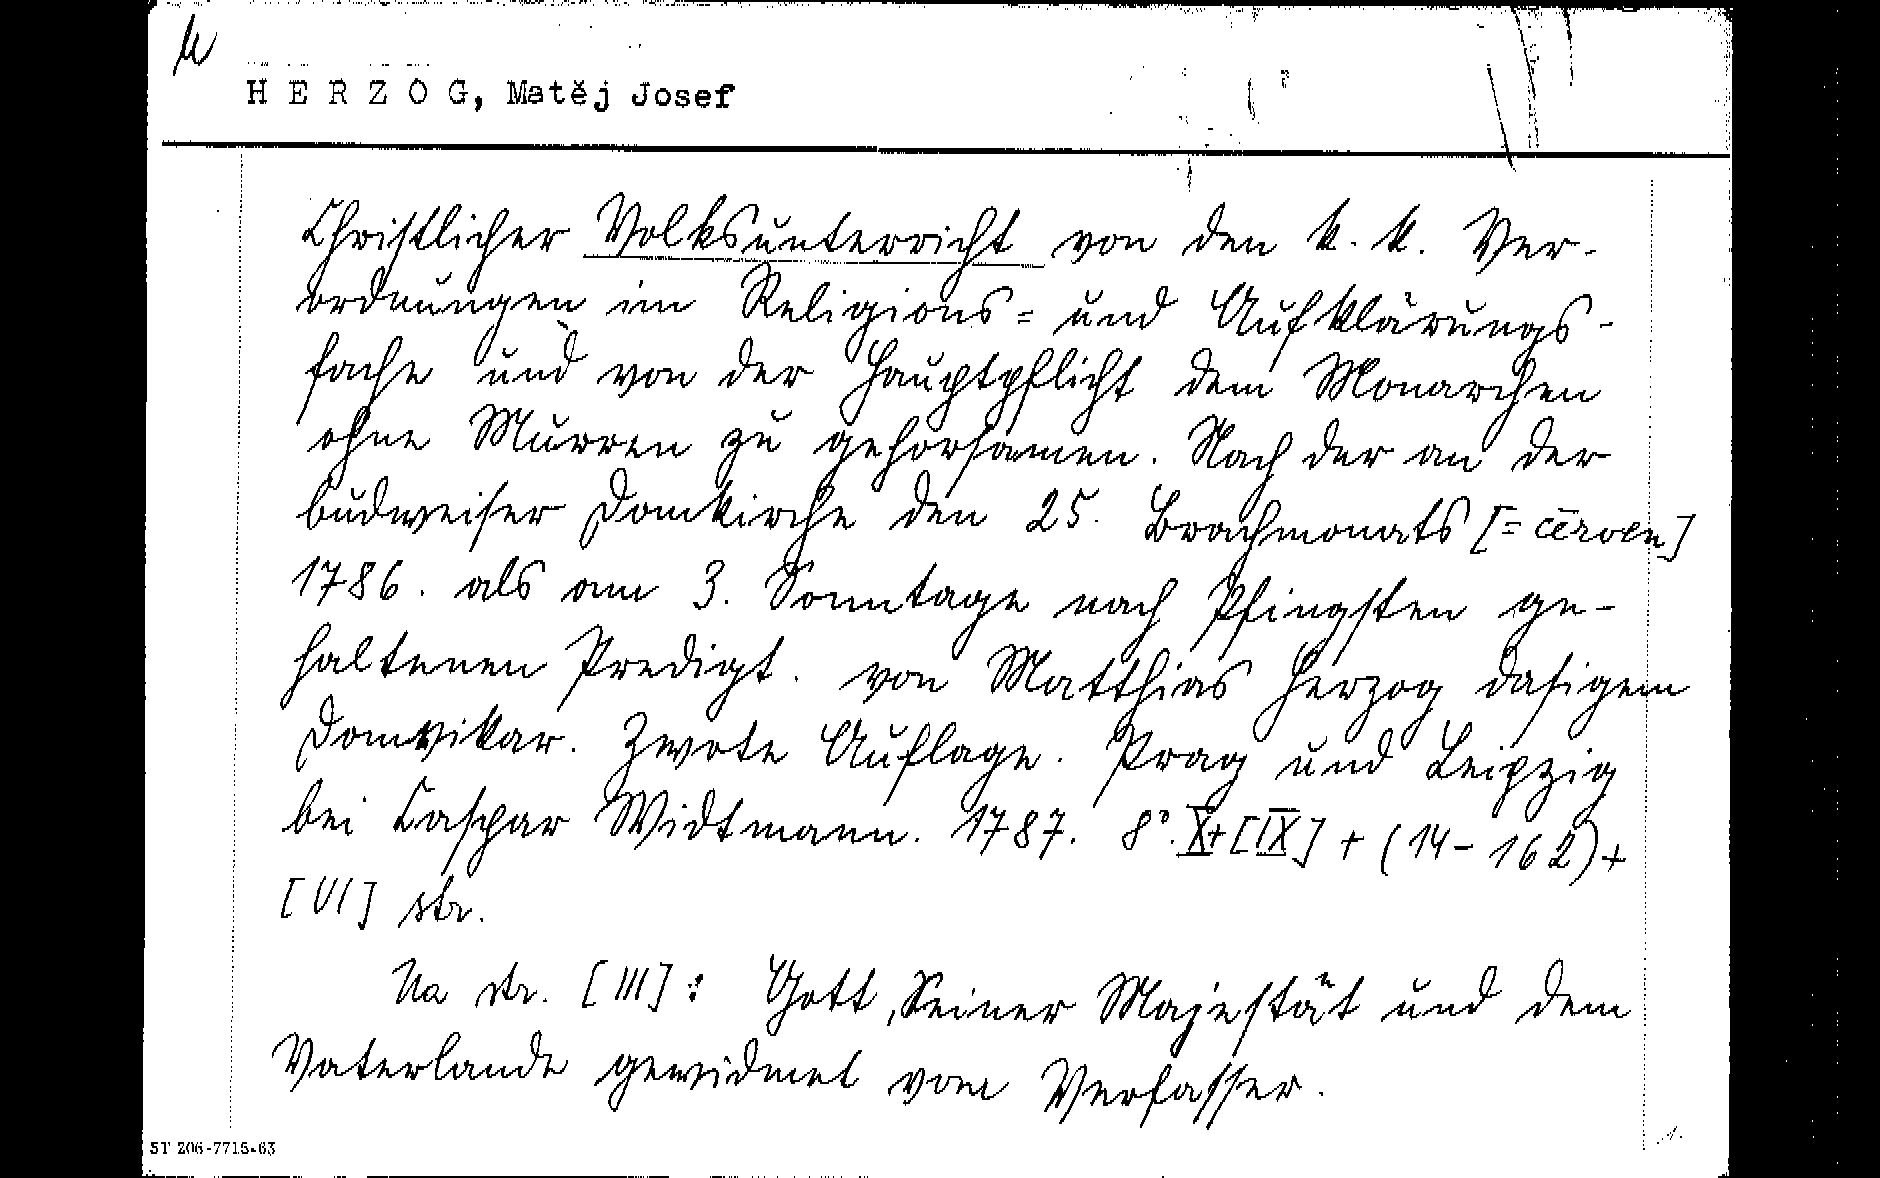 H E R Z O G, Matěj Josef
Christlicher Volksunterricht von den k. k. Ver-
ordnungen im Religions= und Aufklärungs-
fache und von der Hauptpflicht dem Monarchen
ohne Murren zu gehorsamen. Nach der an der
budweiser Domkirche den 25. Brachmonats [= červen]
1786. als am 3. Sonntage nach Pfingsten ge-
haltenen Predigt. von Matthias Herzog dasigem
Domvikar. Zwote Auflage. Prag und Leipzig
bei Caspar Widtmann. 1787. 8°. X+[IX] + (14-162)+
[VI] str.
Na str. [III]: Gott, Seiner Majestät und dem
Vaterlande gewidmet vom Verfasser.
ST 206-7715-63